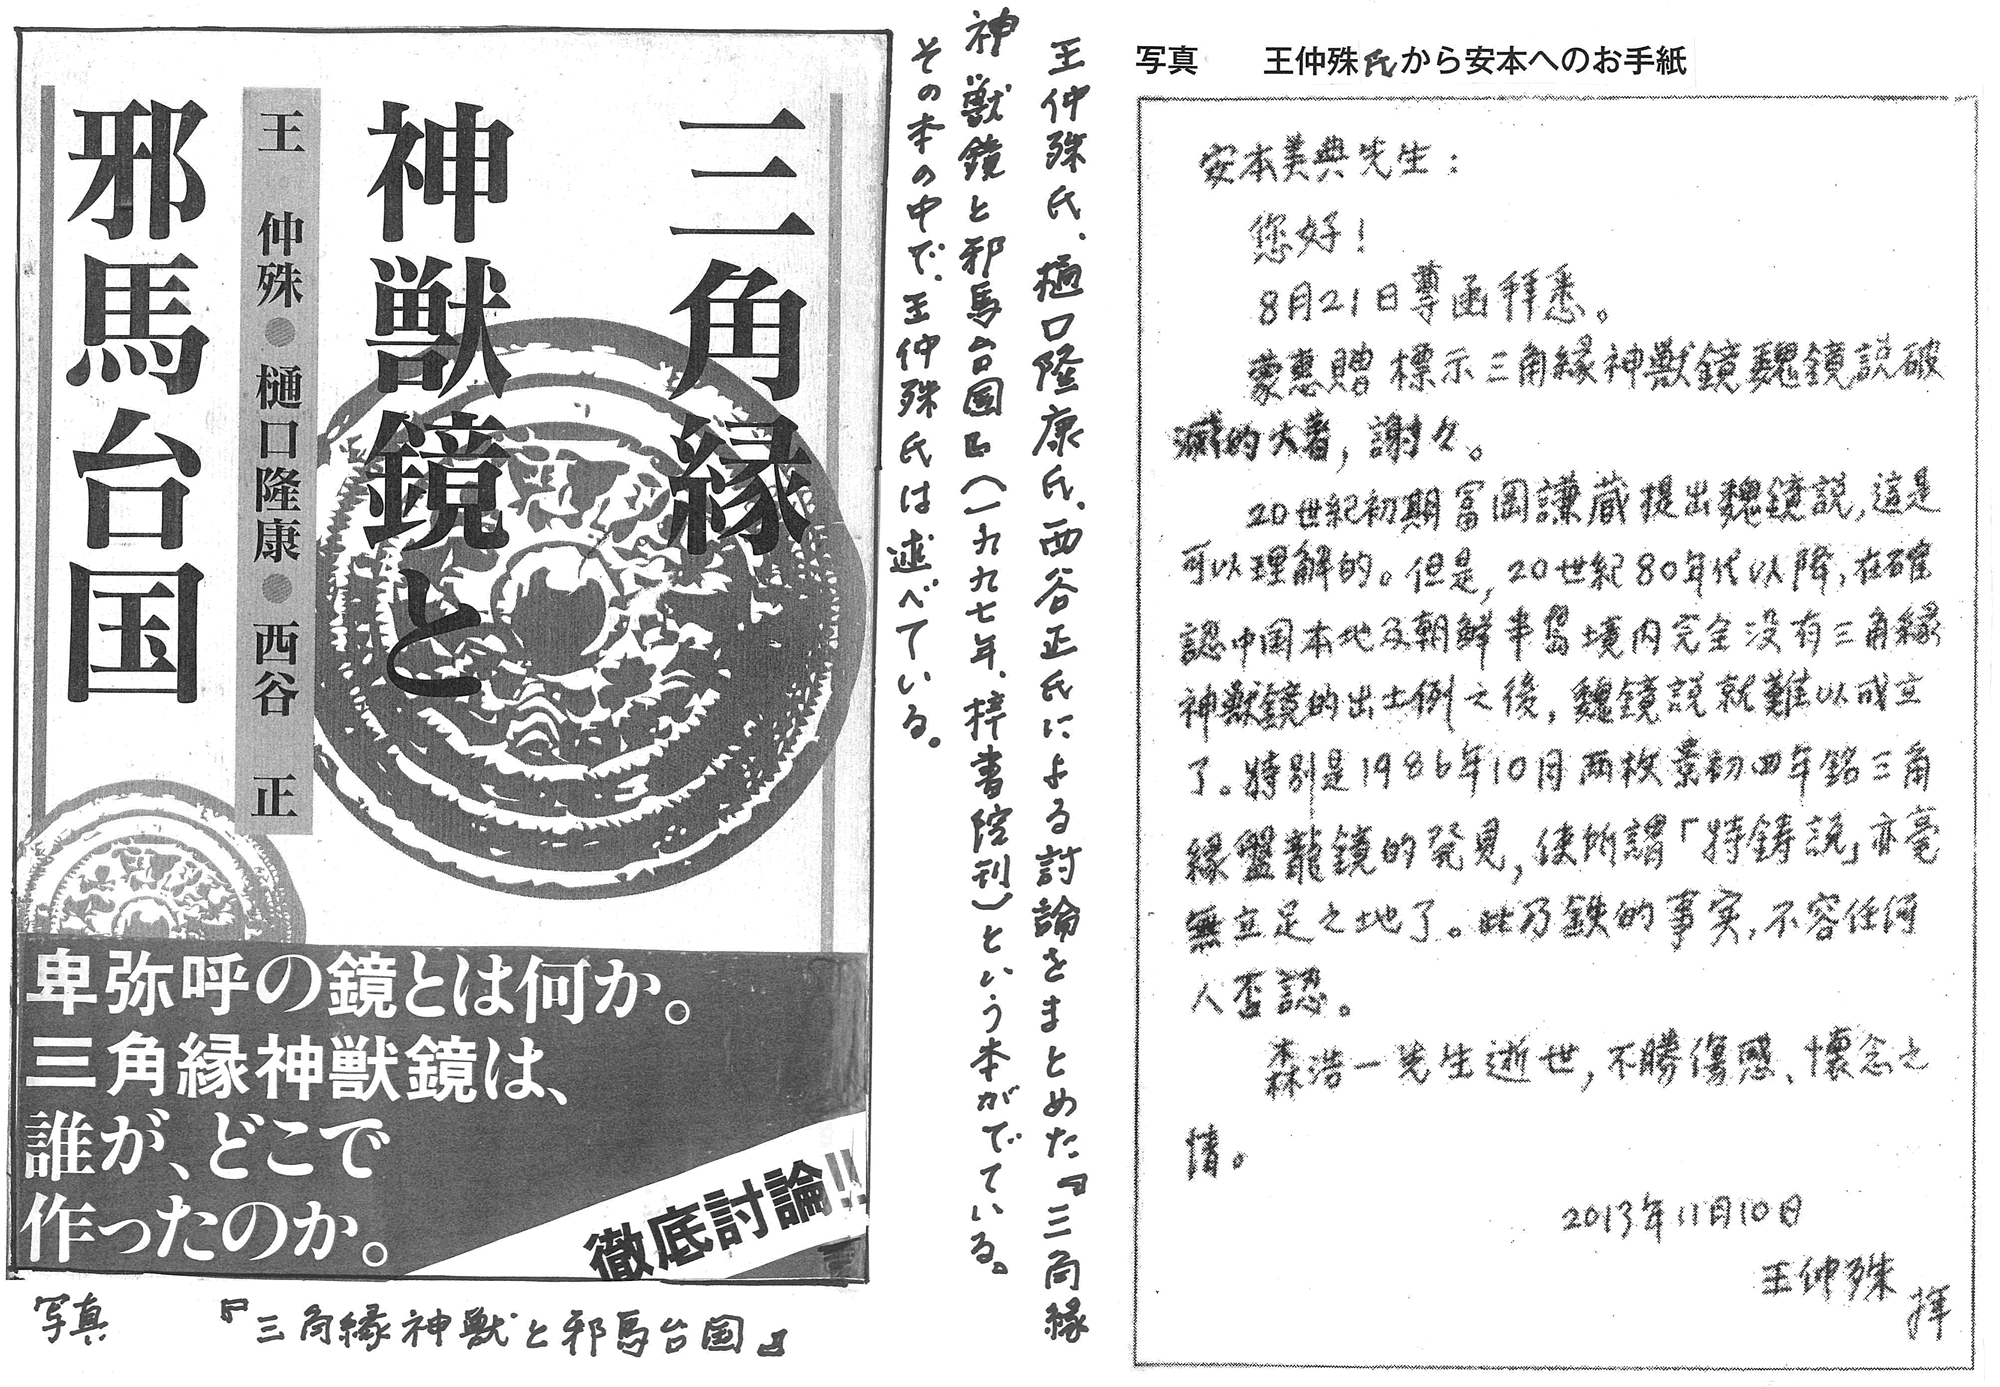 三角縁
神獣鏡と
王 仲殊●樋口隆康●西谷 正
邪馬台国
卑弥呼の鏡とは何か。
三角縁神獣鏡は、
誰が、どこで
作ったのか。
徹底討論!!
写真 『三角縁神獣と邪馬台国』
王仲殊氏、樋口隆康氏、西谷正氏による討論をまとめた『三角縁
神獣鏡と邪馬台国』(一九九七年、梓書院刊)という本がでている。
その本の中で、王仲殊氏は述べている。
写真 王仲殊氏から安本へのお手紙
安本美典先生:
您好!
8月21日尊函拜悉。
蒙惠贈標示三角縁神獣鏡魏鏡説破
滅的大著,謝々。
20世紀初期富岡謙蔵提出魏鏡説,這是
可以理解的。但是,20世紀80年代以降,在確
認中国本地及朝鮮半島境内完全没有三角縁
神獣鏡的出土例之後,魏鏡説就難以成立
了。特別是1986年10月両枚景初四年銘三角
縁盤龍鏡的発見,使所謂「特鋳説」亦毫
無立足之地了。此乃鉄的事実,不容任何
人否認。
森浩一先生逝世,不勝傷感、懐念之
情。
2013年11月10日
王仲殊
拜